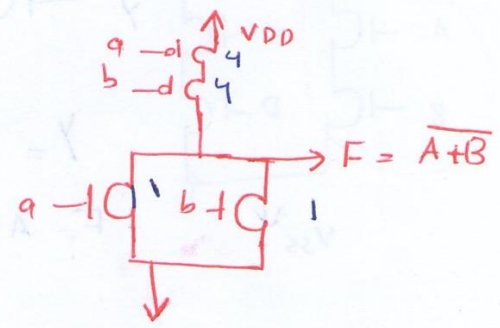 VDD
a
4
b
4
F = \overline{A+B}
a
1
b
1